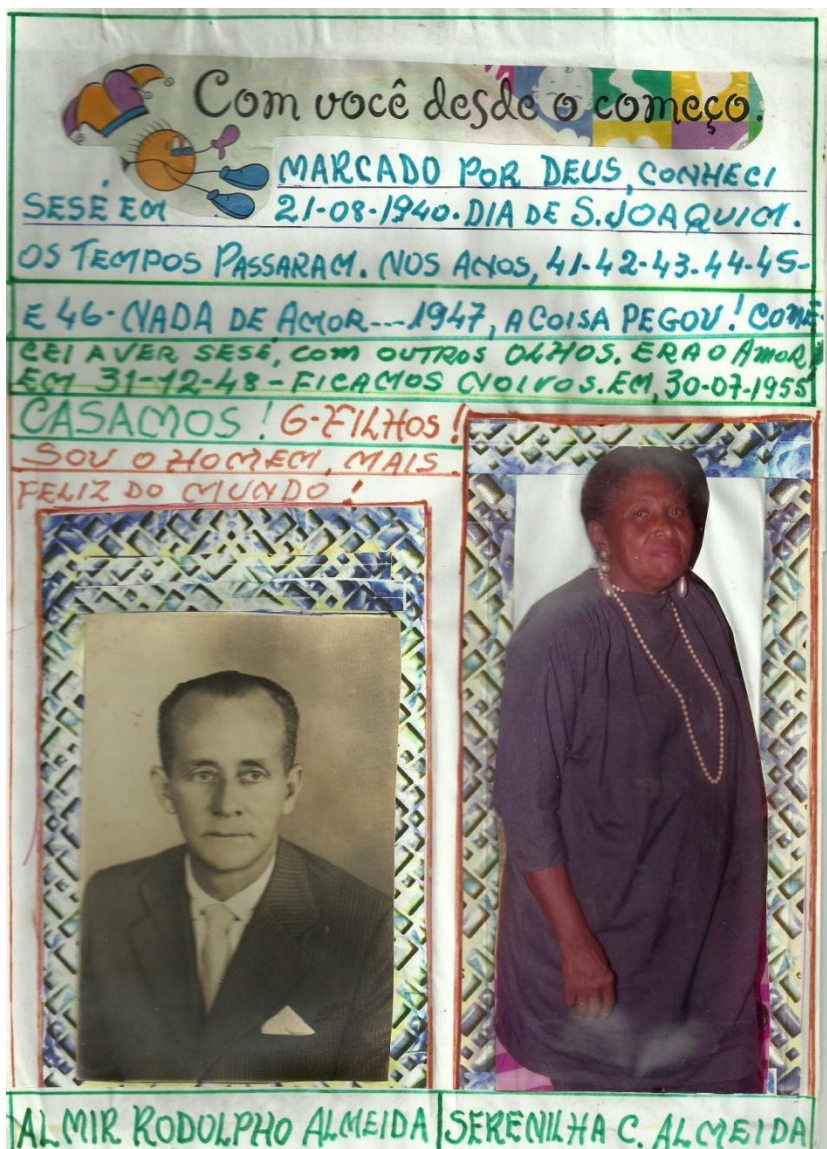 Com você desde o começo.
MARCADO POR DEUS, CONHECI
SESÉ EM 21-08-1940. DIA DE S. JOAQUIM.
OS TEMPOS PASSARAM. NOS ANOS, 41-42-43-44-45-
E 46- NADA DE AMOR---1947, A COISA PEGOU! COME-
CEI A VER SESÉ, COM OUTROS OLHOS. ERA O AMOR,
EM 31-12-48- FICAMOS NOIVOS. EM, 30-07-1955
CASAMOS! 6-FILHOS!
SOU O HOMEM, MAIS
FELIZ DO MUNDO!
ALMIR RODOLPHO ALMEIDA
SERENILHA C. ALMEIDA